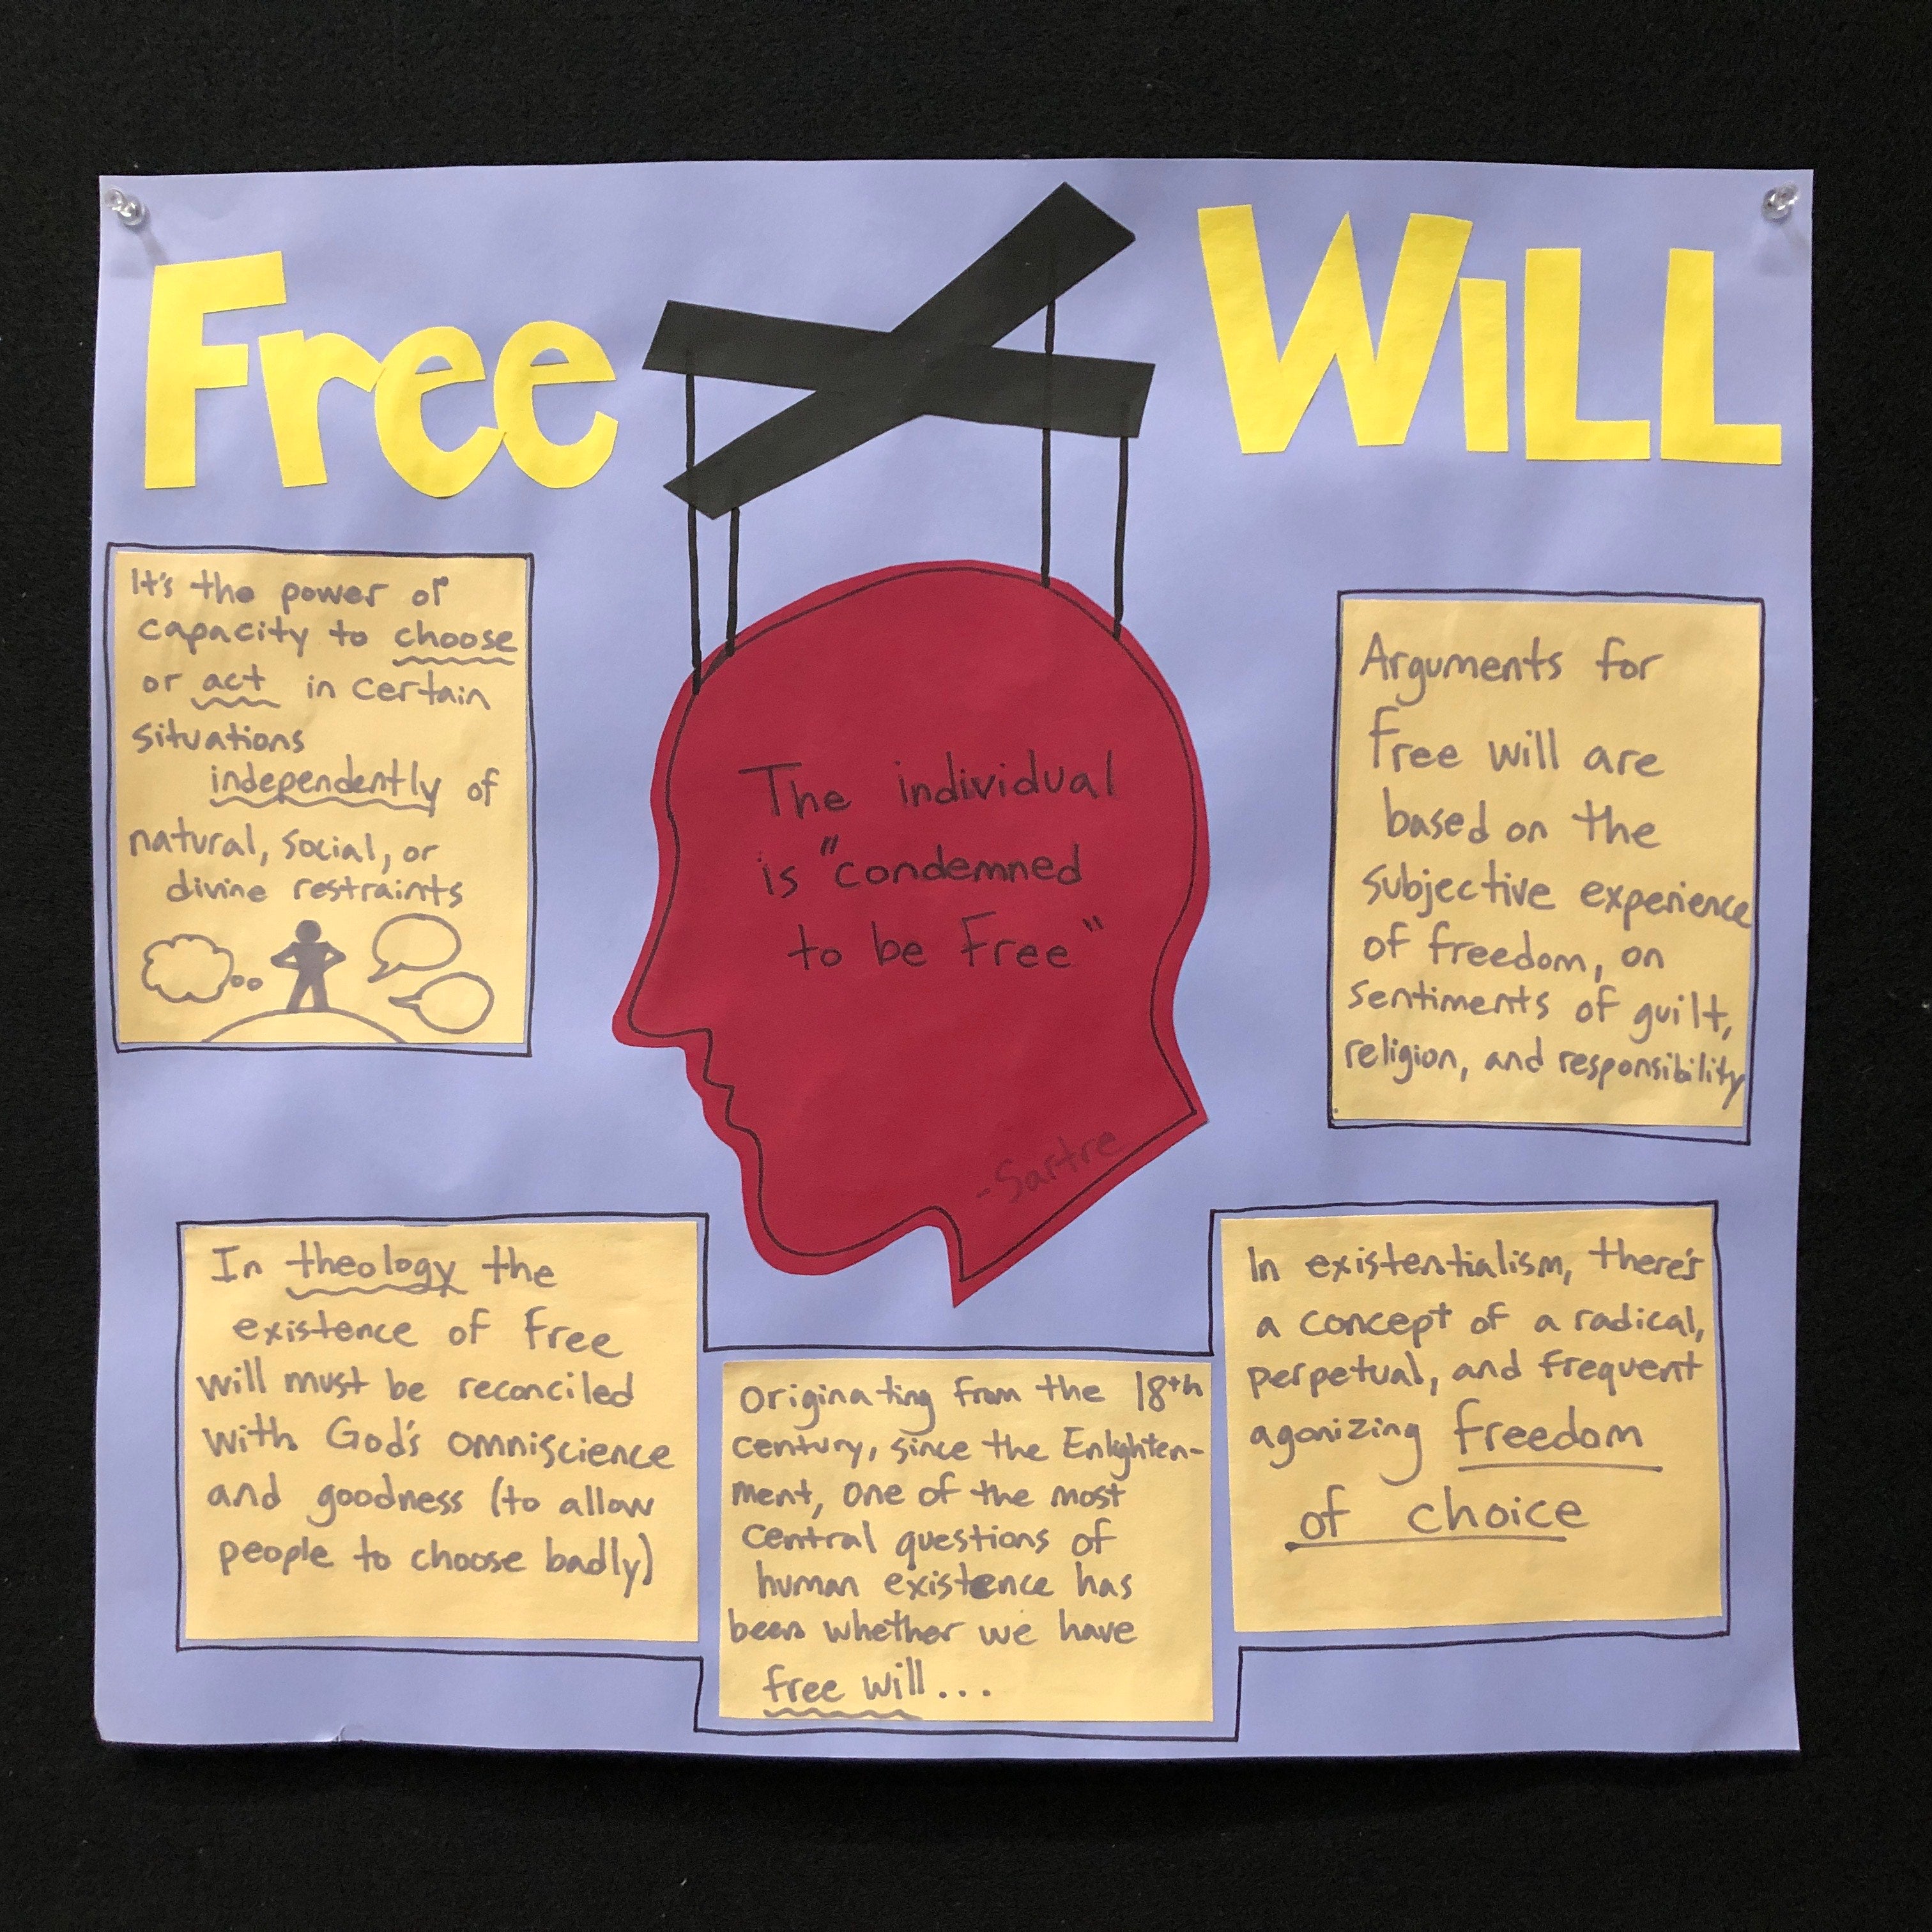 Free Will
It's the power or
capacity to choose
or act in certain
situations
independently of
natural, social, or
divine restraints
The individual
is "condemned
to be Free"
-Sartre
Arguments for
Free will are
based on the
subjective experience
of freedom, on
sentiments of guilt,
religion, and responsibility
In theology the
existence of free
will must be reconciled
with God's omniscience
and goodness (to allow
people to choose badly)
Originating from the 18th
century, since the Enlighten-
ment, one of the most
central questions of
human existence has
been whether we have
free will...
In existentialism, there's
a concept of a radical,
perpetual, and frequent
agonizing freedom
of choice